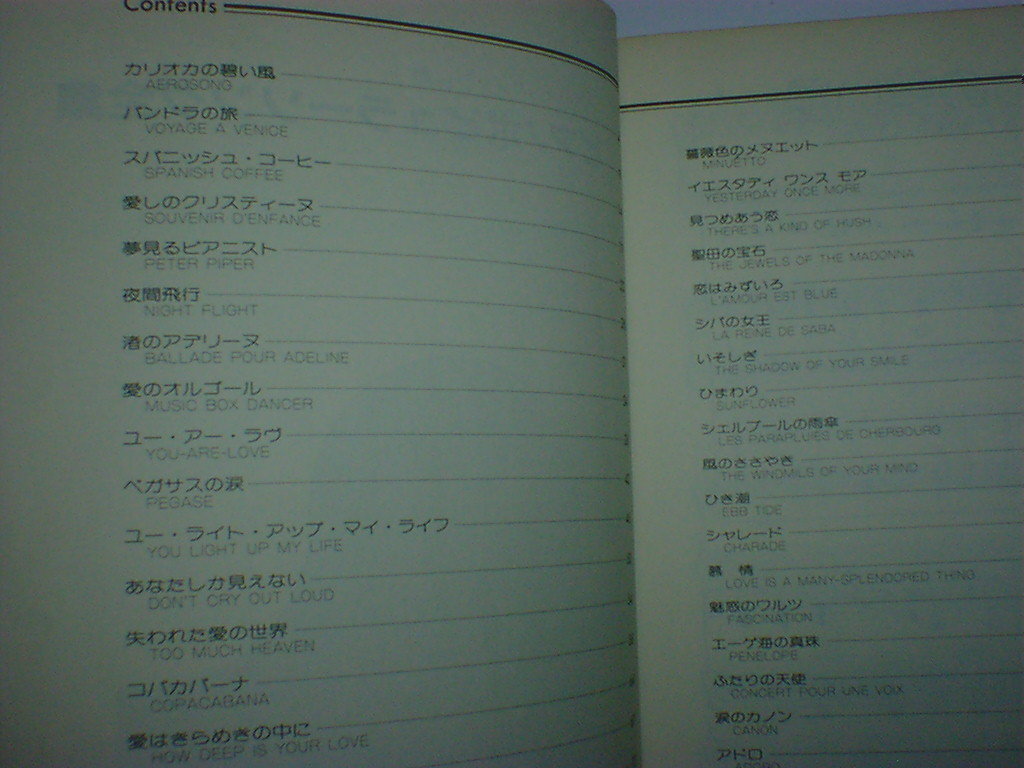 Contents
カリオカの碧い風
AEROSONG
パンドラの旅
VOYAGE A VENICE
スパニッシュ・コーヒー
SPANISH COFFEE
愛しのクリスティーヌ
SOUVENIR D'ENFANCE
夢見るピアニスト
PETER PIPER
夜間飛行
NIGHT FLIGHT
渚のアデリーヌ
BALLADE POUR ADELINE
愛のオルゴール
MUSIC BOX DANCER
ユー・アー・ラヴ
YOU-ARE-LOVE
ペガサスの涙
PEGASE
ユー・ライト・アップ・マイ・ライフ
YOU LIGHT UP MY LIFE
あなたしか見えない
DON'T CRY OUT LOUD
失われた愛の世界
TOO MUCH HEAVEN
コパカバーナ
COPACABANA
愛はきらめきの中に
HOW DEEP IS YOUR LOVE
薔薇色のメヌエット
MINUETTO
イエスタデイ ワンス モア
YESTERDAY ONCE MORE
見つめあう恋
THERE'S A KIND OF HUSH
聖母の宝石
THE JEWELS OF THE MADONNA
恋はみずいろ
L'AMOUR EST BLUE
シバの女王
LA REINE DE SABA
いそしぎ
THE SHADOW OF YOUR SMILE
ひまわり
SUNFLOWER
シェルブールの雨傘
LES PARAPLUIES DE CHERBOURG
風のささやき
THE WINDMILS OF YOUR MIND
ひき潮
EBB TIDE
シャレード
CHARADE
慕 情
LOVE IS A MANY-SPLENDORED THING
魅惑のワルツ
FASCINATION
エーゲ海の真珠
PENELOPE
ふたりの天使
CONCERT POUR UNE VOIX
涙のカノン
CANON
アドロ
ADORO